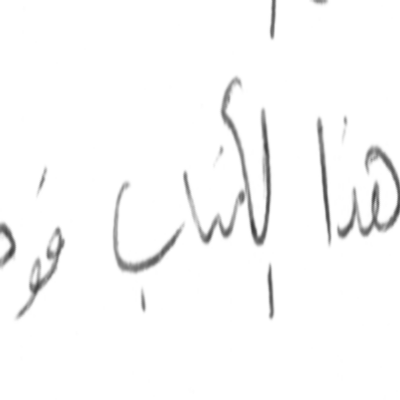 هذا الكتاب